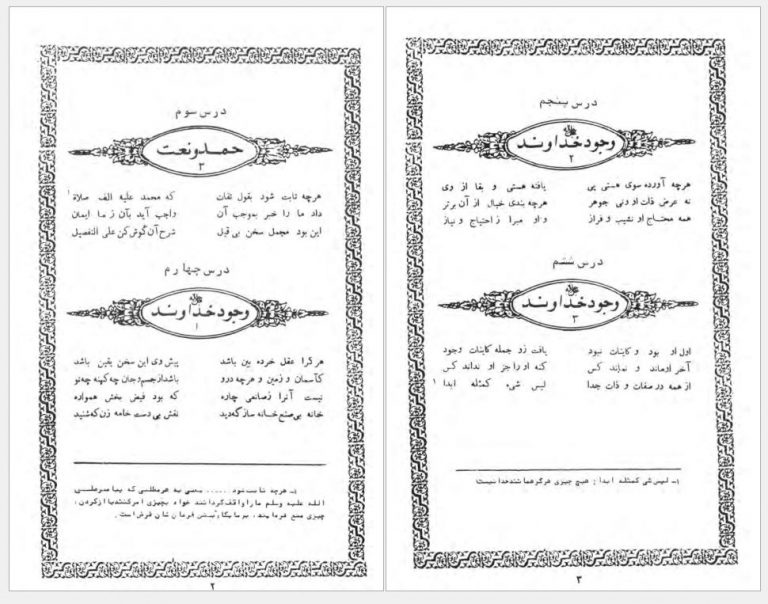 درس سوم
حمد و نعت
۳
هرچه ثابت شود بقول ثقات که محمد علیه الف صلاة ۱
داد ما را خبر بموجب آن واجب آید بآن ز ما ایمان
این بود مجمل سخن بی قیل شرح آن گوش کن علی التفصیل
درس چهارم
وجود خداوند
۱
هر کرا عقل خرده بین باشد پیش وی این سخن یقین باشد
کآسمان و زمین و هرچه درو باشد از جسم و جان چه کهنه چه نو
نیست آنرا ز صانعی چاره که بود فیض بخش همواره
خانه بی صنع خانه ساز که دید نقش بی دست خامه زن که شنید
۱ـ هرچه ثابت شود ..... یعنی به هر مطلبی که پیامبر صلی
الله علیه وسلم ما را واقف گردانند خواه بچیزی امر کنند یا از کردن،
چیزی منع فرمایند، بر ما فرمان شان فرض است.
۲
درس پنجم
وجود خداوند
۲
هرچه آورده سوی هستی پی یافته هستی و بقا از وی
نه عرض ذات او و نی جوهر هرچه بندی خیال از آن برتر
همه محتاج او نشیب و فراز و او مبرا ز احتیاج و نیاز
درس ششم
وجود خداوند
۳
اول او بود و کاینات نبود یافت زو جمله کاینات وجود
آخر او ماند و نماند کس کنه او را جز او نداند کس
از همه در صفات و ذات جدا لیس شیء کمثله ابدا ۱
۱ـ لیس شی کمثله ابدا: هیچ چیزی هرگز همانند خدا نیست.
۳